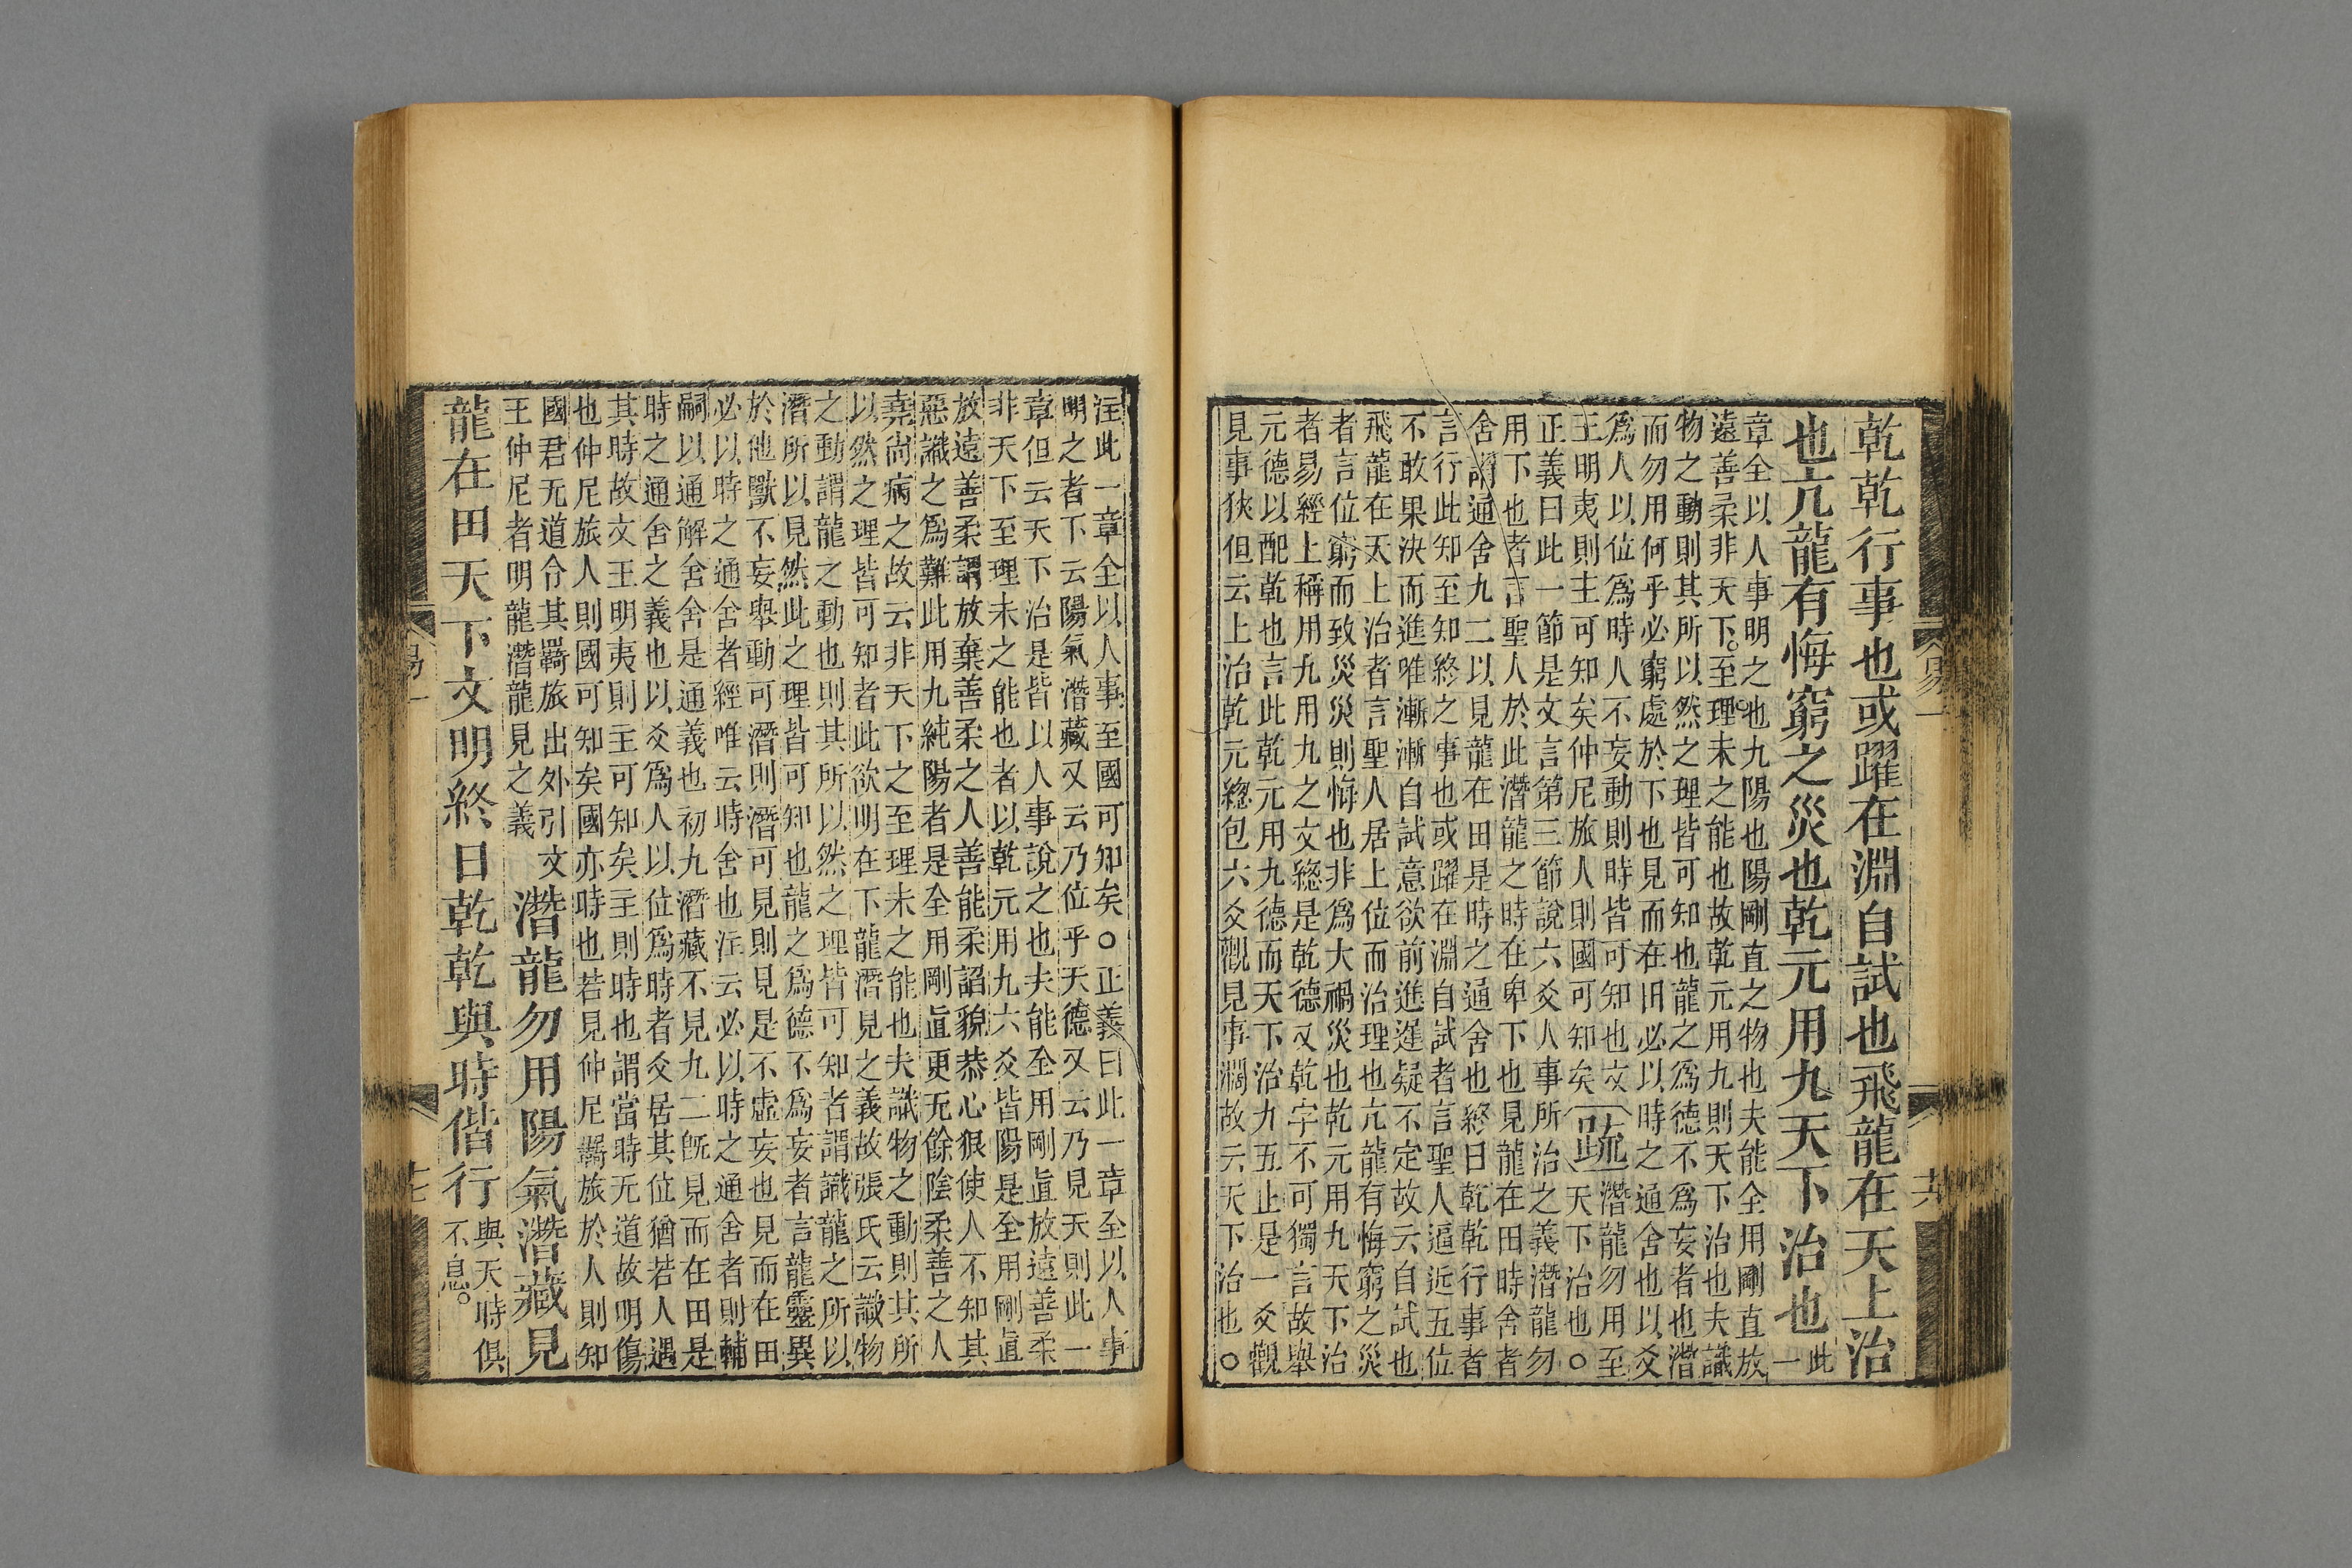 乾乾行事也或躍在淵自試也飛龍在天上治
也亢龍有悔窮之災也乾元用九天下治也此一
章全以人事明之也九陽也陽剛直之物也夫能全用剛直放
遠善柔非天下至理未之能也故乾元用九則天下治也夫識
物之動則其所以然之理皆可知也龍之為德不為妄者也潛
而勿用何乎必窮處於下也見而在田必以時之通舍也以爻
為人以位為時人不妄動則時皆可知也文
王明夷則主可知矣仲尼旅人則國可知矣
疏
潛龍勿用至
天下治也○
正義曰此一節是文言第三節說六爻人事所治之義潛龍勿
用下也者言聖人於此潛龍之時在卑下也見龍在田時舍者
舍謂通舍九二以見龍在田是時之通舍也終日乾乾行事者
言行此知至知終之事也或躍在淵自試者言聖人逼近五位
不敢果決而進唯漸漸自試意欲前進遲疑不定故云自試也
飛龍在天上治者言聖人居上位而治理也亢龍有悔窮之災
者言位窮而致災災則悔也非為大禍災也乾元用九天下治
者易經上稱用九用九之文總是乾德又乾字不可獨言故舉
元德以配乾也言此乾元用九德而天下治九五止是一爻觀
見事狹但云上治乾元總包六爻觀見事濶故云天下治也○
易一
十六
注此一章全以人事至國可知矣○正義曰此一章至以人事
明之者下云陽氣潛藏又云乃位乎天德又云乃見天則此一
章但云天下治是皆以人事說之也夫能全用剛直放遠善柔
非天下至理未之能也者以乾元用九六爻皆陽是全用剛直
放遠善柔謂放棄善柔之人善能柔諂貌恭心狠使人不知其
惡識之為難此用九純陽者是全用剛直更无餘陰柔善之人
堯尚病之故云非天下之至理未之能也夫識物之動則其所
以然之理皆可知者此欲明在下龍潛見之義故張氏云識物
之動謂龍之動也則其所以然之理皆可知者謂識龍之所以
潛所以見然此之理皆可知也龍之為德不為妄者言龍靈異
於他獸不妄舉動可潛則潛可見則見是不虛妄也見而在田
必以時之通舍者經唯云時舍也注云必以時之通舍者則輔
嗣以通解舍舍是通義也初九潛藏不見九二既見而在田是
時之通舍之義也以爻為人以位為時者爻居其位猶若人遇
其時故文王明夷則主可知矣主則時也謂當時无道故明傷
也仲尼旅人則國可知矣國亦時也若見仲尼羈旅於人則知
國君无道令其羈旅出外引文
王仲尼者明龍潛龍見之義
潛龍勿用陽氣潛藏見
龍在田天下文明終日乾乾與時偕行與天時俱不息
易一
十七